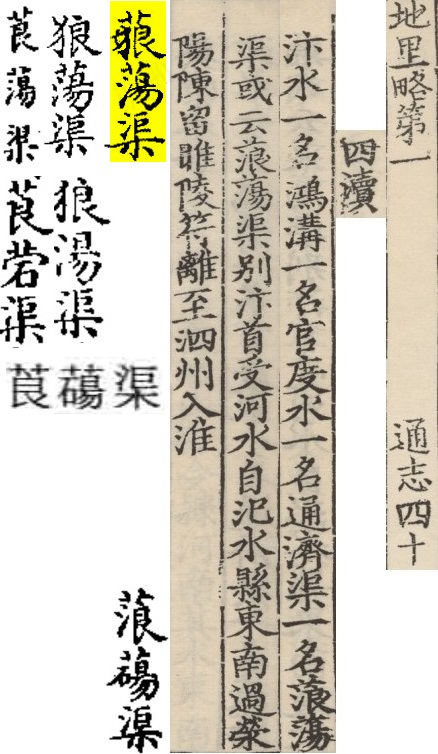 地里略第一 通志四十
四瀆
汴水一名鴻溝一名官度水一名通濟渠一名蒗蕩
渠或云蒗蕩渠别汴首受河水自汜水縣東南過滎
陽陳留睢陵符離至泗州入淮
蕩渠
蒗䕞渠
狼蕩渠
狼湯渠
莨蕩渠
莨菪渠
莨䕞渠